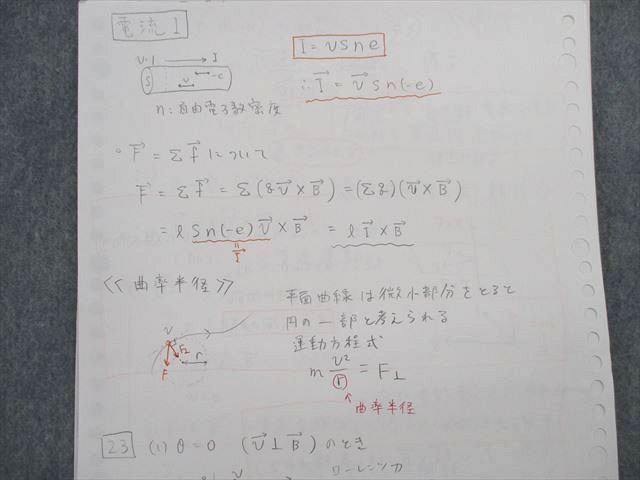 電流 I
I = vSne
v・1 I
S v -e
∴ I→ = v→ S n(-e)
n:自由電子数密度
○ F→ = Σ f→ について
F→ = Σ f→ = Σ (q v→ × B→) = (Σ q)(v→ × B→)
= l S n(-e) v→ × B→ = l I→ × B→
I→
≪ 曲率半径 ≫
平面曲線は微小部分をとると
円の一部と考えられる
運動方程式
v F⊥ r F
m v²/r = F⊥
↑曲率半径
23 (1) θ=0 (v→ ⊥ B→) のとき
v ローレンツ力